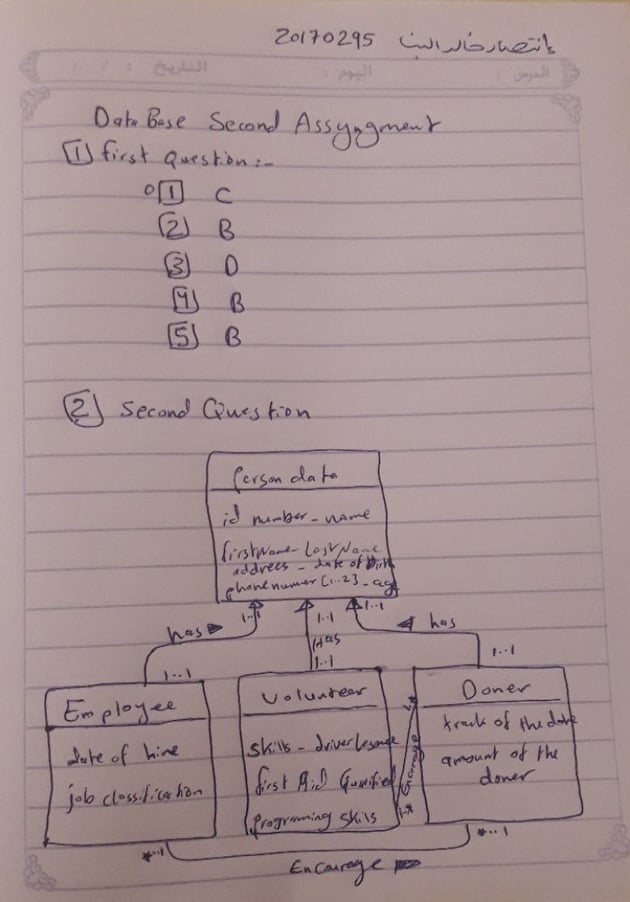 إنتصار خالد البنا 20170295
الدرس : اليوم : التاريخ : / /
DataBase Second Assyngment
1 first question :-
1 C
2 B
3 D
4 B
5 B
2 Second Question
Person data
id number - name
firstName - LastName
address - date of birth
phone numer [1..2] - age
1..1 1..1 1..1
has Has has
1..1 1..1 1..1
Employee
date of hire
job classification
Volunteer
skills - driver
first Aid Qualified
programing skils
Doner
track of the date
amount of the
doner
1..*
*..1 *..1
Encourage